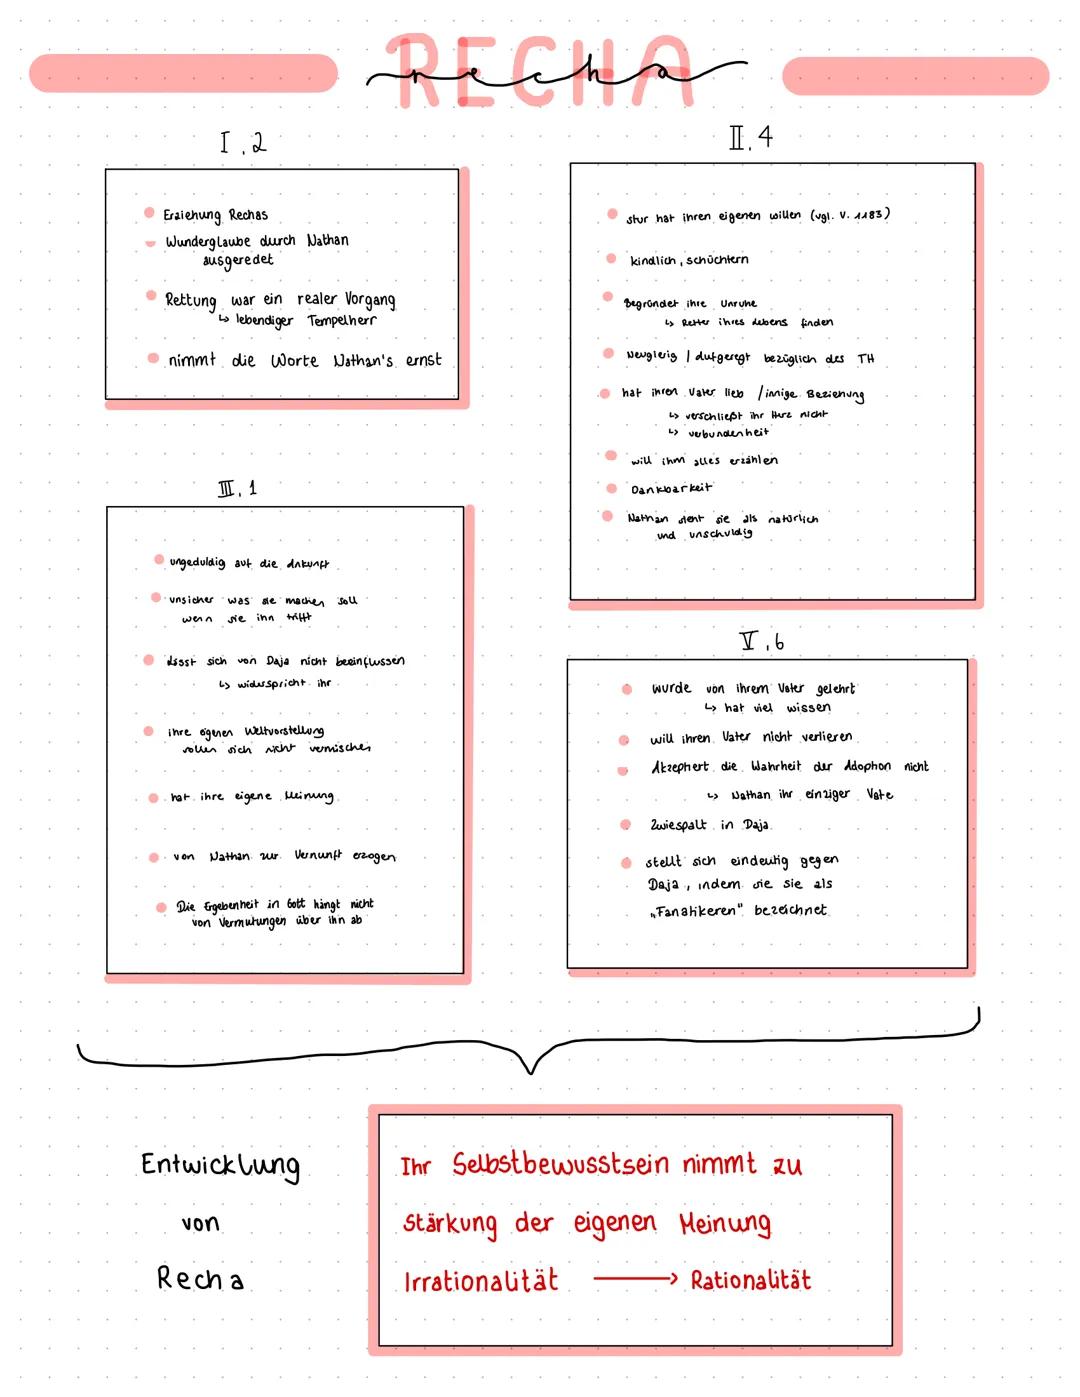 RECHA
recha
I.2
Erziehung Rechas
Wunderglaube durch Nathan
ausgeredet
Rettung war ein realer Vorgang
↳ lebendiger Tempelherr
nimmt die Worte Nathan's ernst
II.4
stur hat ihren eigenen willen (vgl. V. 1183)
kindlich, schüchtern
Begründet ihre Unruhe
↳ Retter ihres Lebens finden
Neugierig / Aufgeregt bezüglich des TH
hat ihren Vater lieb / innige Beziehung
↳ verschließt ihr Herz nicht
↳ verbundenheit
will ihm alles erzählen
Dankbarkeit
Nathan sieht sie als natürlich
und unschuldig
III.1
ungeduldig auf die Ankunft
unsicher was sie machen soll
wenn sie ihn trifft
lässt sich von Daja nicht beeinflussen
↳ widerspricht ihr
ihre eigenen Weltvorstellung
sollen sich nicht vermischen
hat ihre eigene Meinung
von Nathan zur Vernunft erzogen
Die Ergebenheit in Gott hängt nicht
von Vermutungen über ihn ab
V.6
wurde von ihrem Vater gelehrt
↳ hat viel wissen
will ihren Vater nicht verlieren
Akzephert die Wahrheit der Adophon nicht
↳ Nathan ihr einziger Vate
Zwiespalt in Daja
stellt sich eindeutig gegen
Daja, indem sie sie als
„Fanatikeren" bezeichnet
Entwicklung
von
Recha
Ihr Selbstbewusstsein nimmt zu
Stärkung der eigenen Meinung
Irrationalität → Rationalität